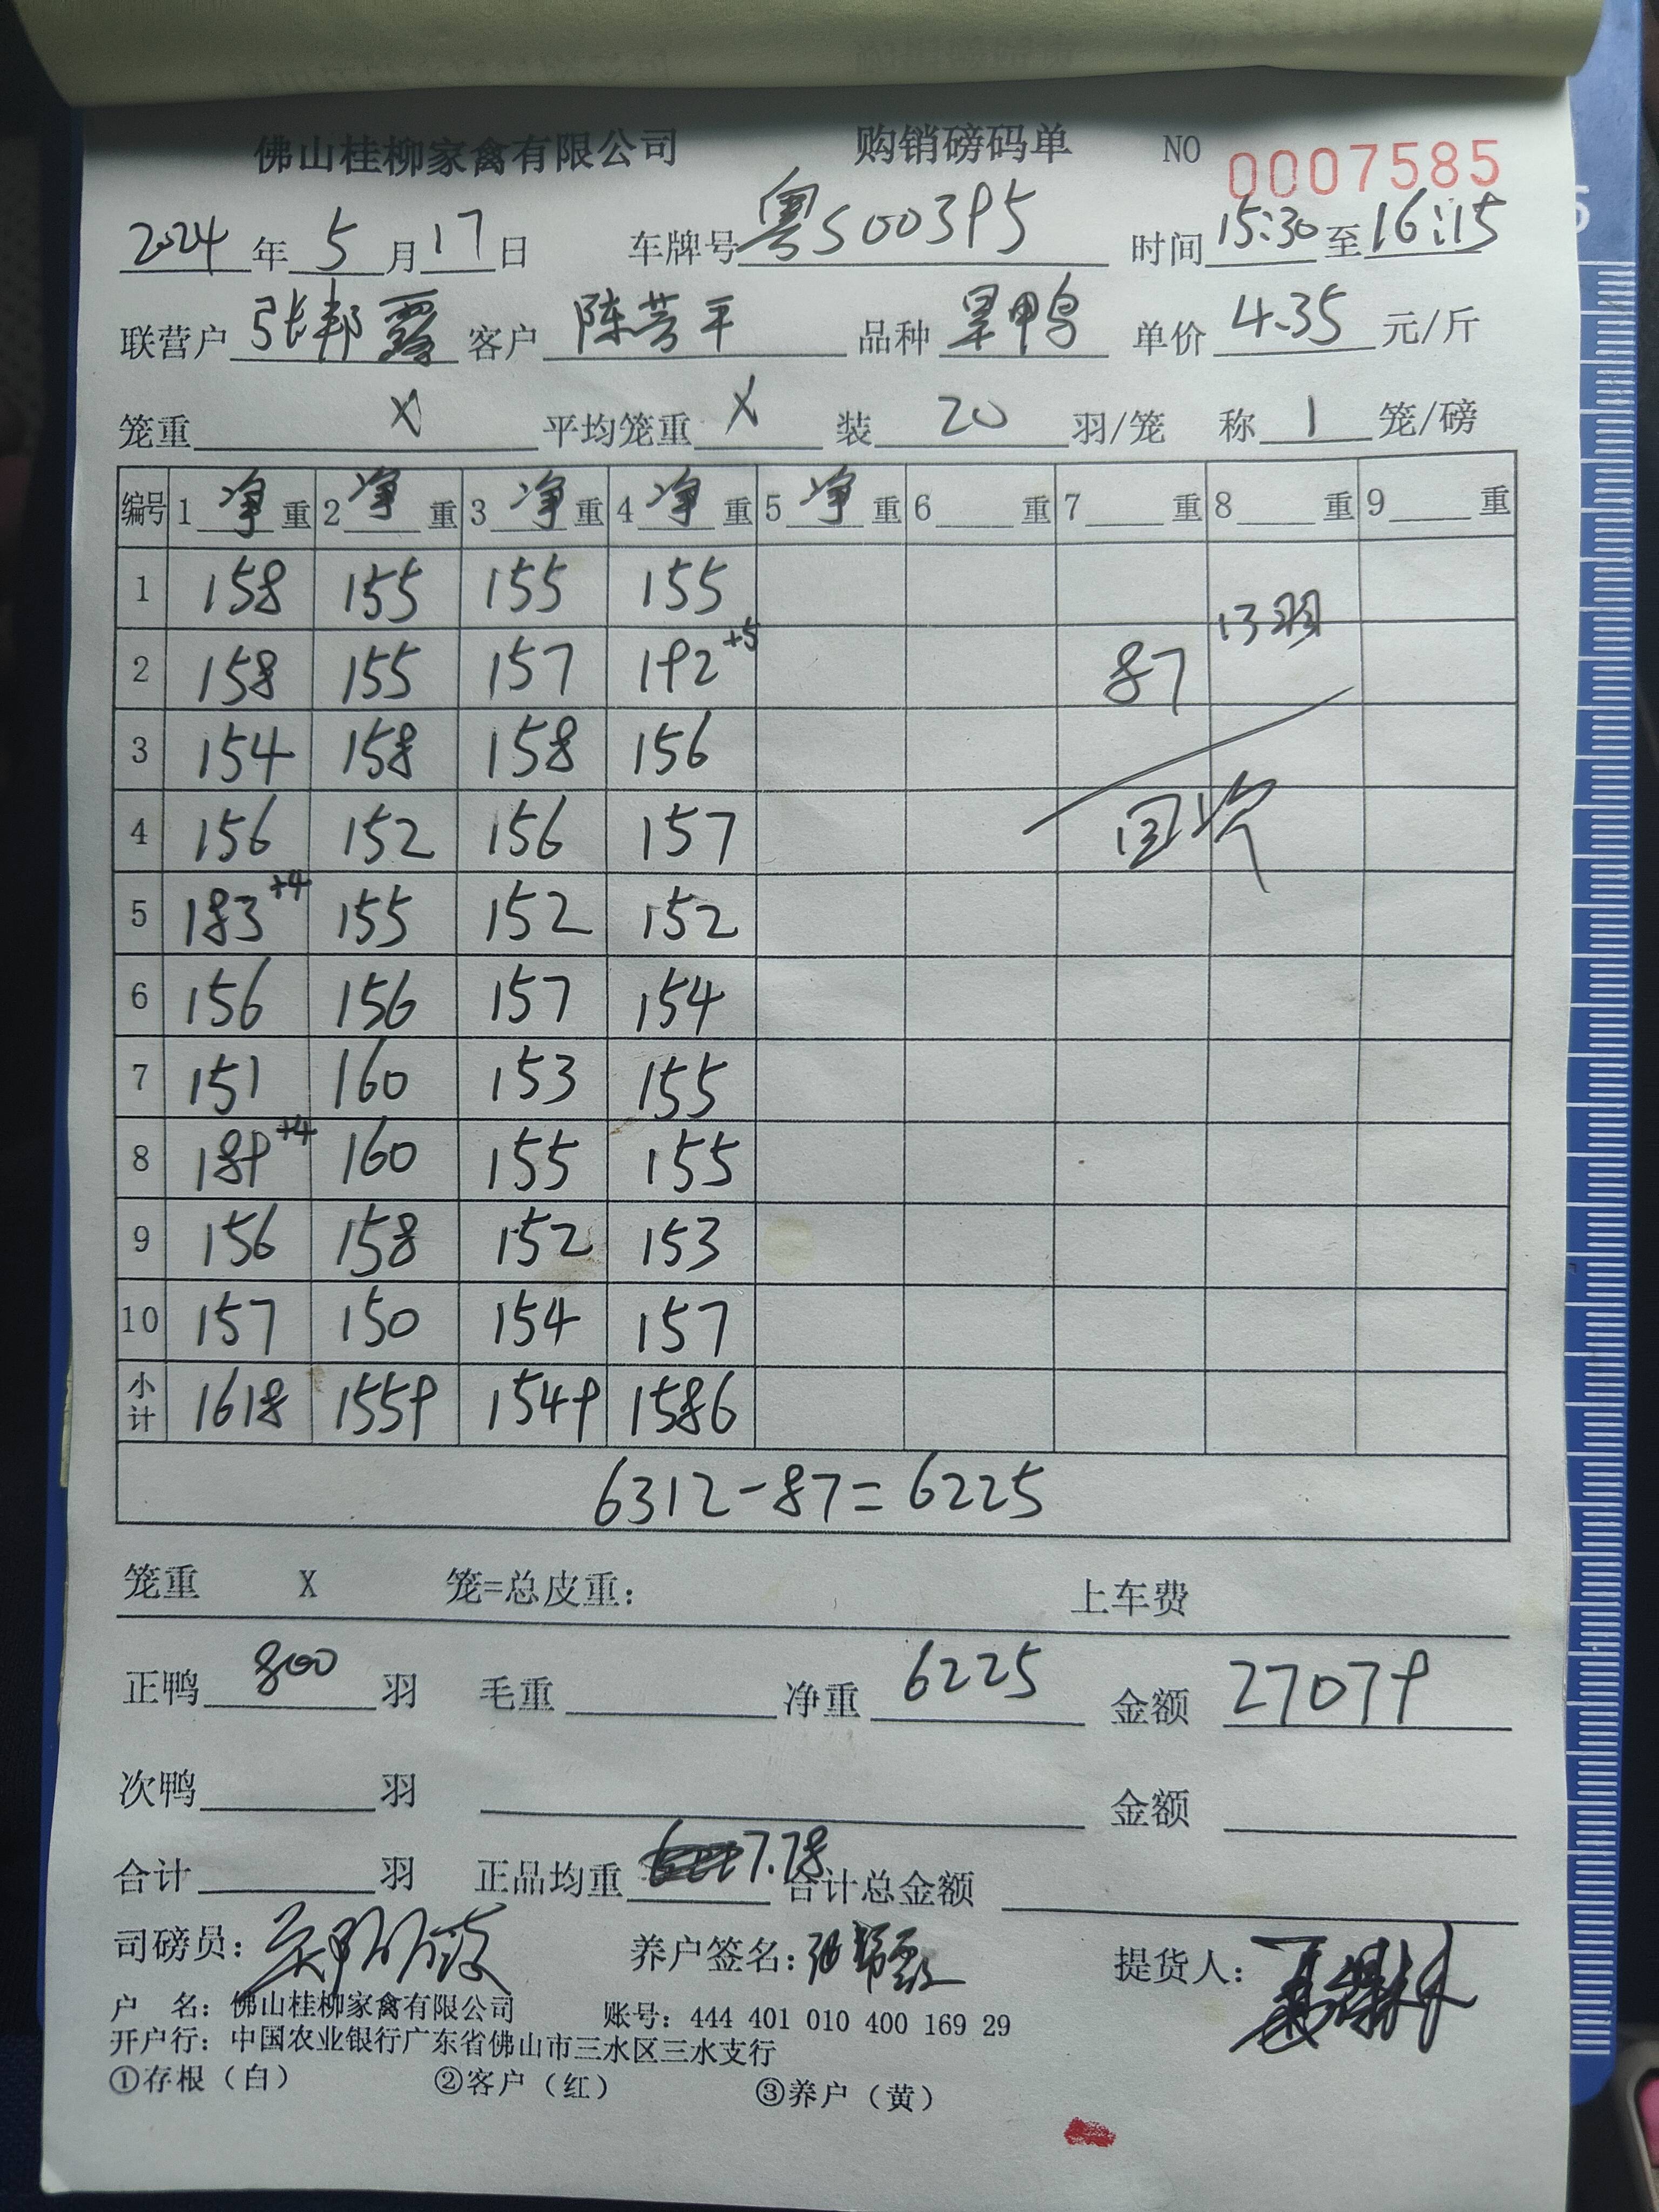 佛山桂柳家禽有限公司 购销磅码单 NO 0007585
2024年5月17日 车牌号粤S00395 时间15:30至16:15
联营户张邦霞 客户陈芳平 品种旱鸭 单价4.35元/斤
笼重X 平均笼重X 装20羽/笼 称1笼/磅
编号 1净重 2净重 3净重 4净重 5净重 6重 7重 8重 9重
1 158 155 155 155 13羽
2 158 155 157 192+5 87
3 154 158 158 156
4 156 152 156 157 回收
5 183+4 155 152 152
6 156 156 157 154
7 151 160 153 155
8 189+4 160 155 155
9 156 158 152 153
10 157 150 154 157
小计 1618 1559 1549 1586
6312-87=6225
笼重 X 笼=总皮重: 上车费
正鸭800羽 毛重 净重6225 金额27079
次鸭 羽 金额
合计 羽 正品均重7.78 合计总金额
司磅员: 养户签名: 提货人:
户 名: 佛山桂柳家禽有限公司 账号: 444 401 010 400 169 29
开户行: 中国农业银行广东省佛山市三水区三水支行
①存根(白) ②客户(红) ③养户(黄)